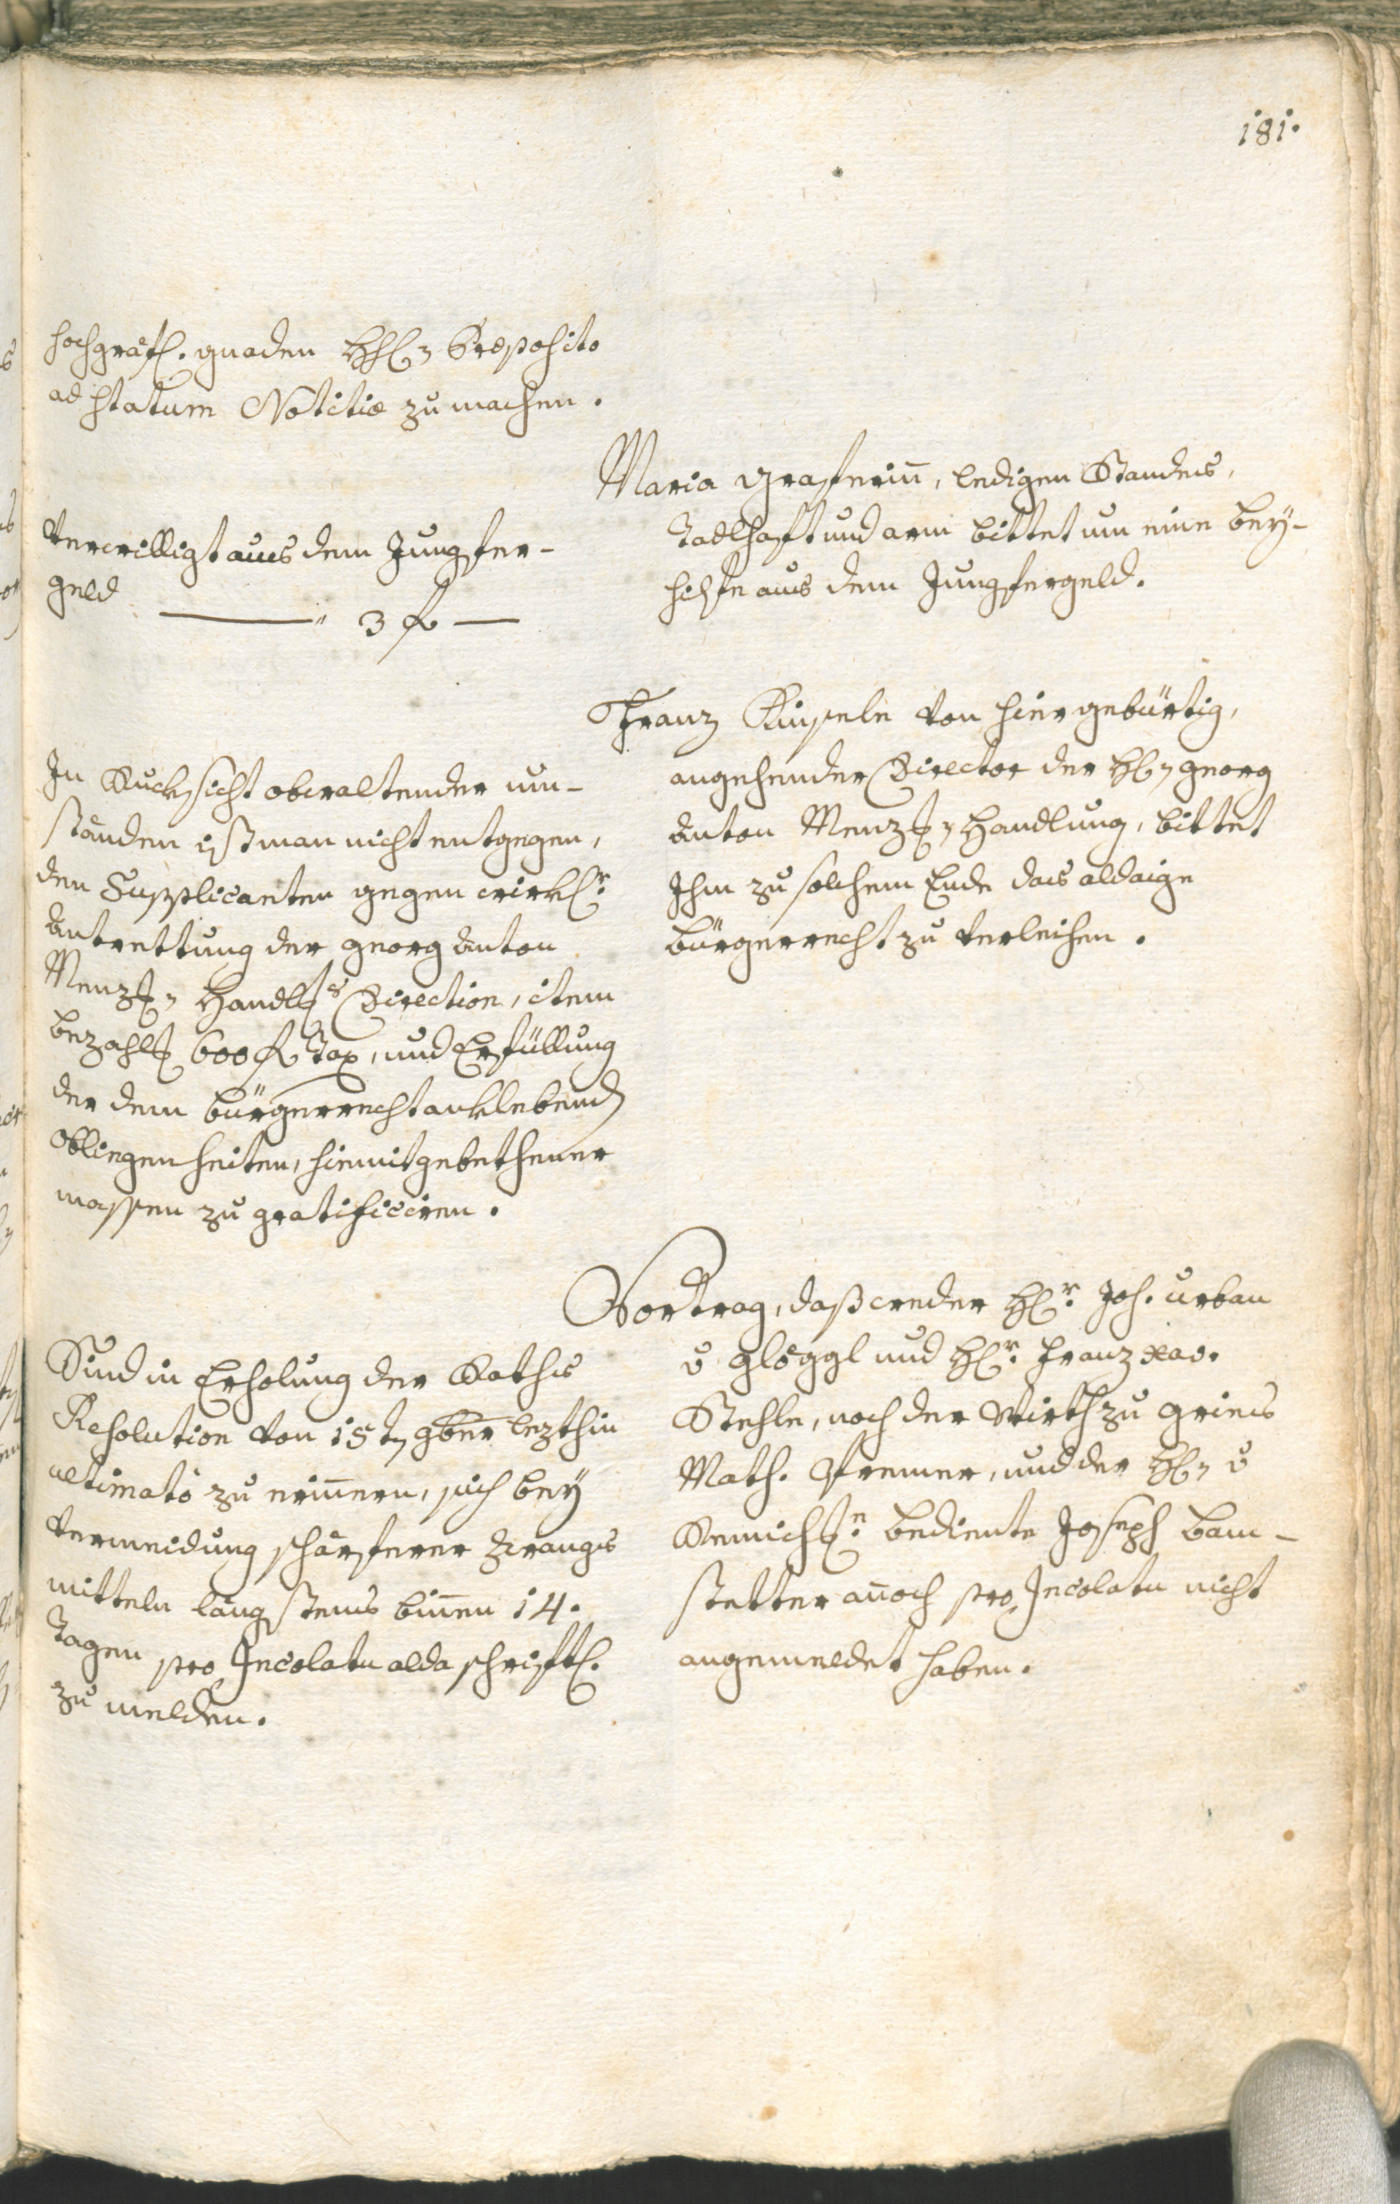 181.
hochgräfl. gnaden HH. Præposito
ad statum Notitiæ zu machen.
Maria Graferin, ledigen Standes,
Tadlhaft und arm bittet um eine bey-
hilfe aus dem Jungfergeld.
Verwilligt aus dem Jungfer-
geld
3 fl
Franz von hier gebürtig,
angehender Director der H. Georg
Anton Menz. Handlung, bittet
Ihm zu solchem Ende das aldaige
bürgerrecht zu verleihen.
In Rucksicht obwaltender um-
ständen ist man nicht entgegen,
den Supplicanten gegen wirkl.r
Antrettung der Georg Anton
Menz. Handlgs Direction, item
bezahlg 600 fl Tax, und Erfüllung
der dem bürgerrecht anklebenden
obliegenheiten, hiemit gebethener
massen zu gratificiren.
Vortrag, daß weder H.r Joh. Urban
v Glöggl und H.r Franz Xav.
Stehle, noch der Wirth zu Gries
Math. Premer, und der H. v
bediente Joseph bam-
stetter annoch pro Incolatu nicht
angemeldet haben.
Sind in Erholung der Raths
Resolution von 15t 9ber lezthin
ultimató zu erinnern, sich bey
vermeidung schärferer Zwangs
mitteln längstens binnen 14.
Tagen pro Incolatu alda schriftl.
zu melden.